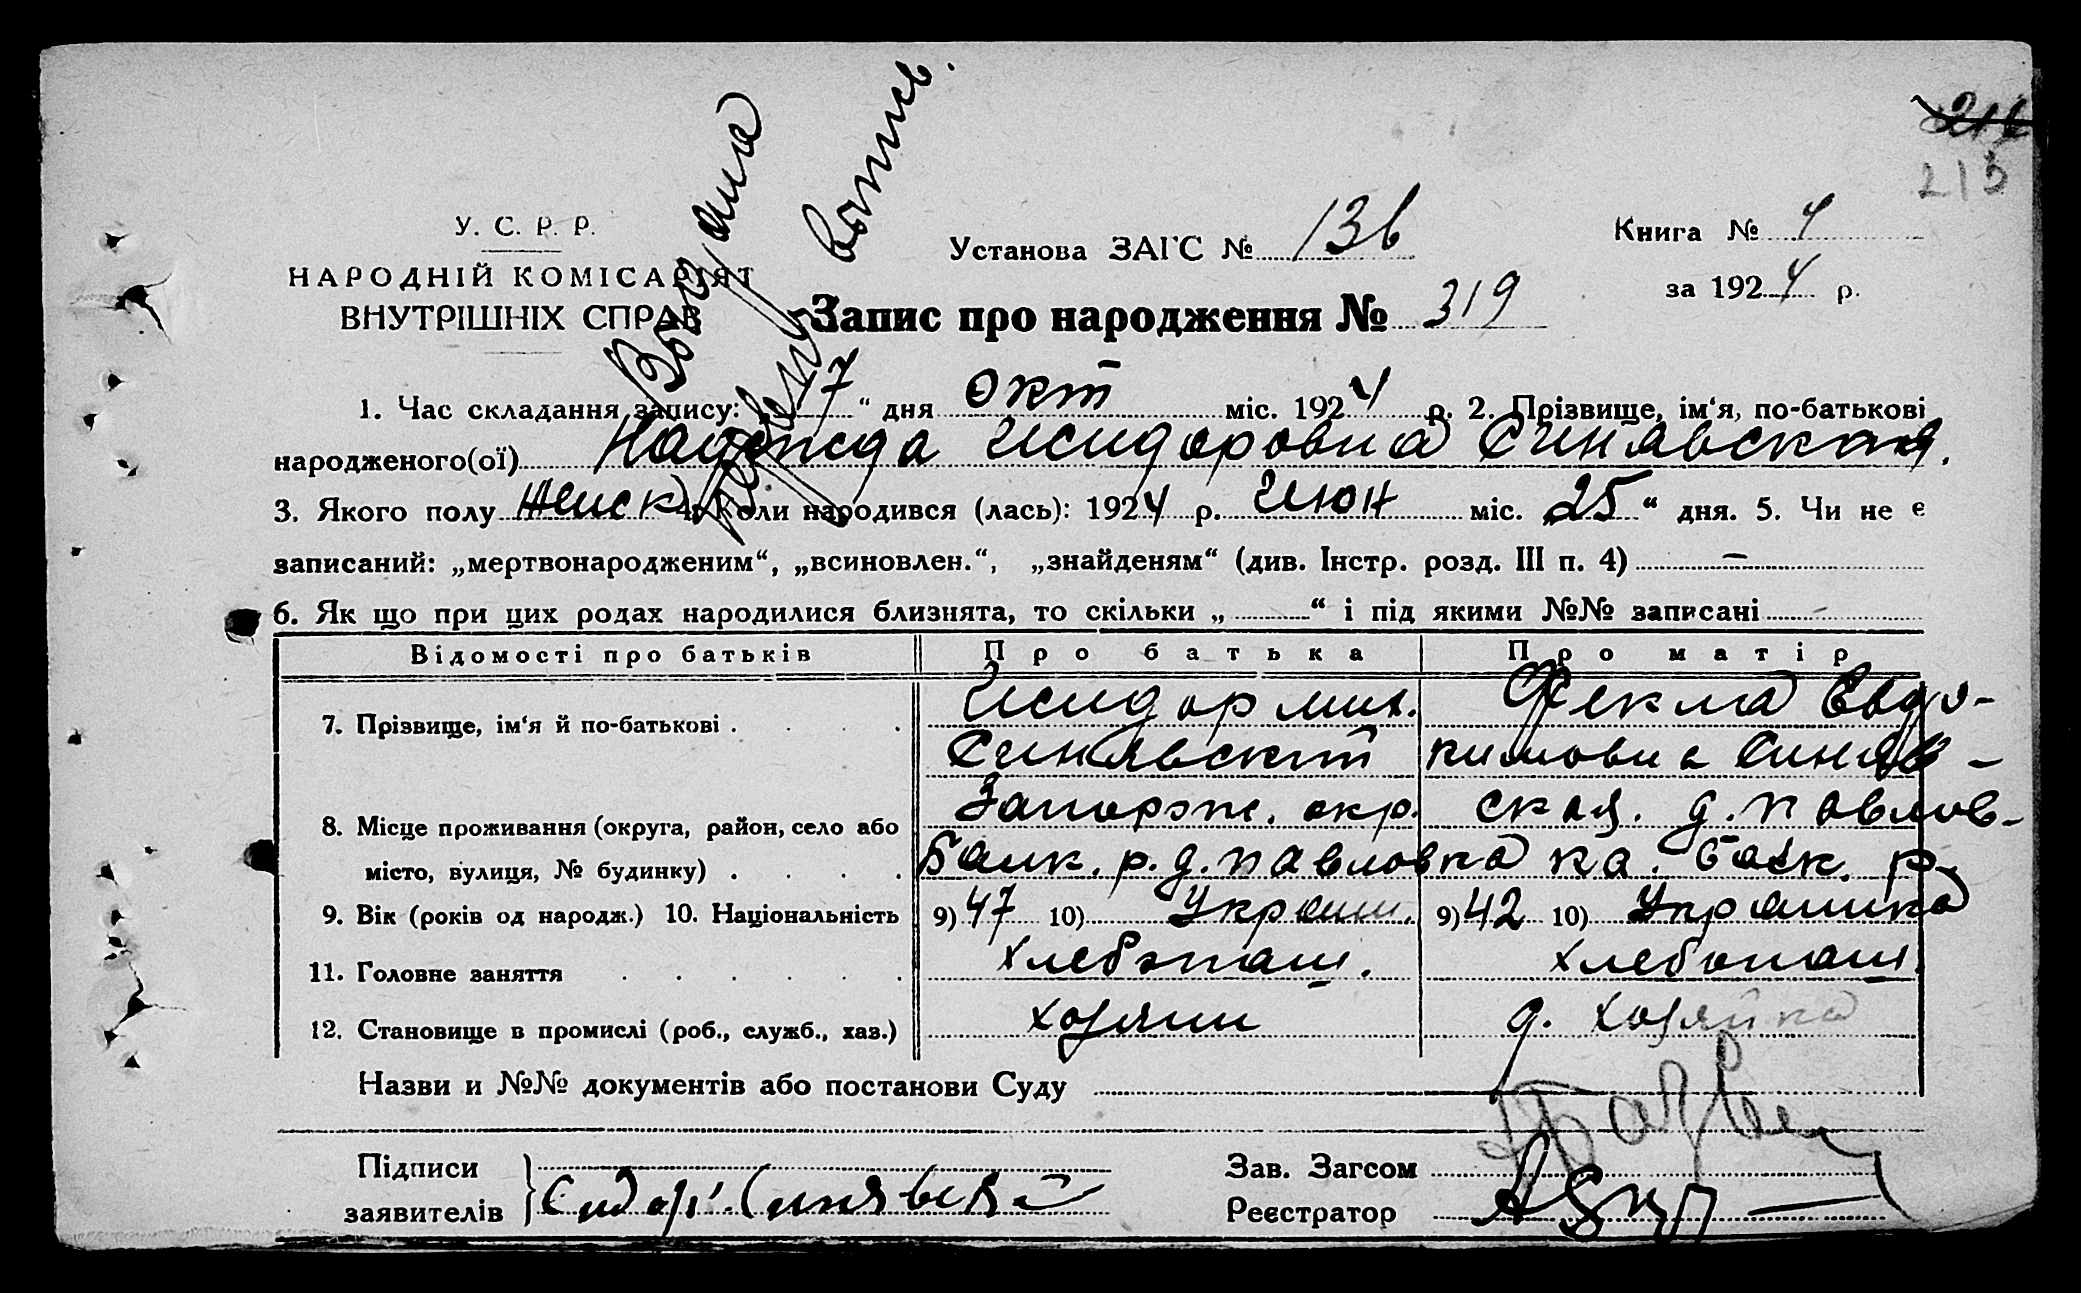 216
215
У. С. Р. Р.
НАРОДНІЙ КОМІСАРІЯТ
ВНУТРІШНІХ СПРАВ
Установа ЗАГС № 136
Книга № 4
за 1924 р.
Запис про народження № 319
выпись.
1. Час складання запису: „7“ дня окт міс. 1924 р. 2. Прізвище, ім'я, по-батькові
народженого(ої) Надежда Исидоровна Синявская.
3. Якого полу Женск 4. Коли народився (лась): 1924 р. Июн міс. „25“ дня. 5. Чи не є
записаний: „мертвонародженим“, „всиновлен.“, „знайденям“ (див. Інстр. розд. III п. 4) —
6. Як що при цих родах народилися близнята, то скільки „ “ і під якими №№ записані -
Відомості про батьків Про батька Про матір
7. Прізвище, ім'я й по-батькові . . . . Исидор мих. Фекла Евдо-
Синявский кимовна Синяв-
8. Місце проживання (округа, район, село або Запорож. окр. ская. д. Павлов-
місто, вулиця, № будинку) . . . . Балк. р. д. Павловка ка. Балк. р.
9. Вік (років од народж.) 10. Національність 9) 47 10) Украин. 9) 42 10) Украинка
11. Головне заняття . . . . . . Хлебопаш. Хлебопаш.
12. Становище в промислі (роб., служб., хаз.) хозяин д. хозяйка
Назви и №№ документів або постанови Суду
Підписи
заявителів Сидор Синявский
Зав. Загсом
Реєстратор